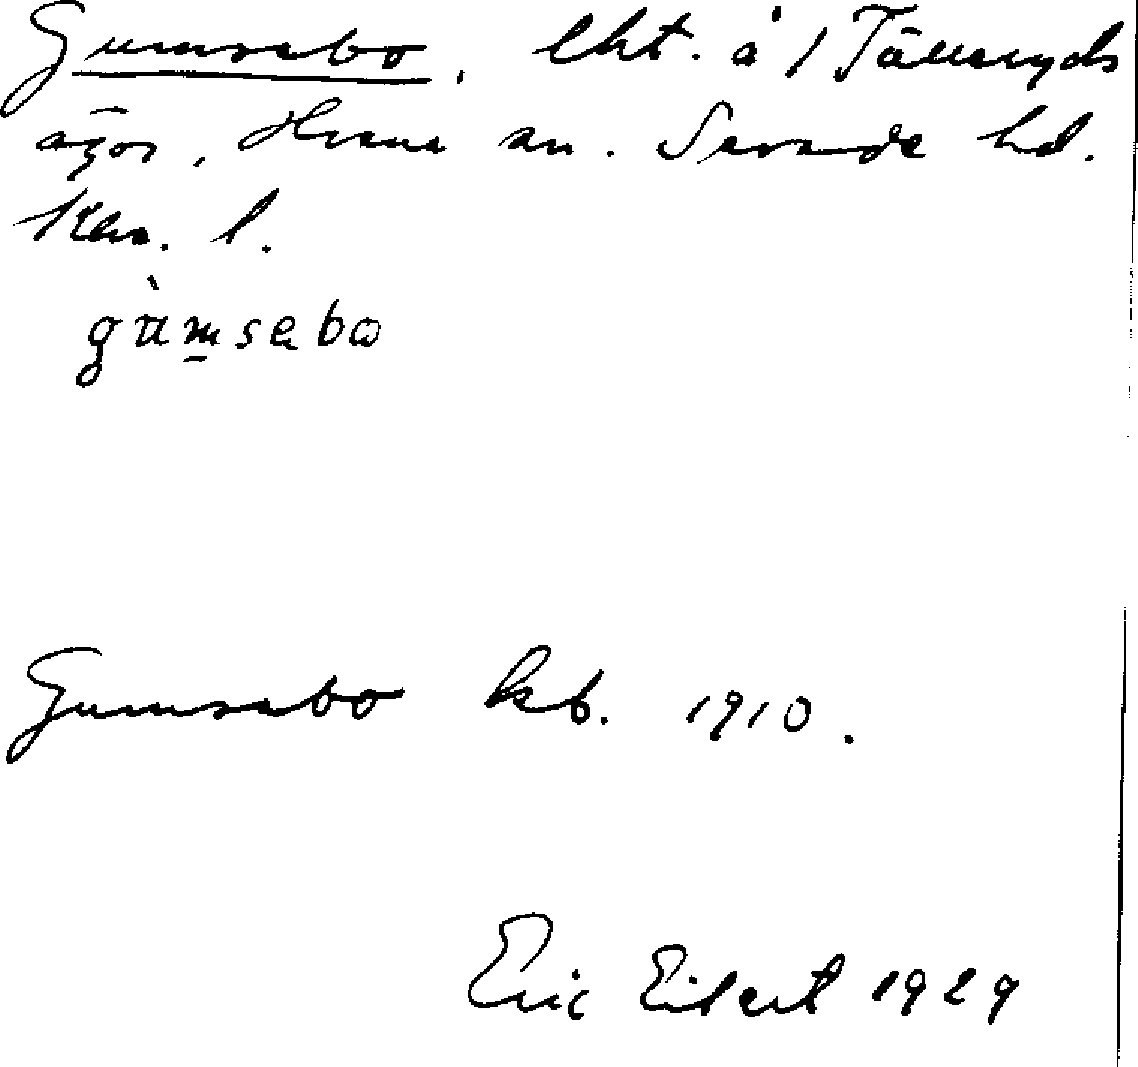 Gumsebo, lht. å / Tälleryds
ägor, Hvena sn. Sevede hd.
Klm. l.
gùmsebo
Gumsebo kb. 1910.
Eric Eilert 1929